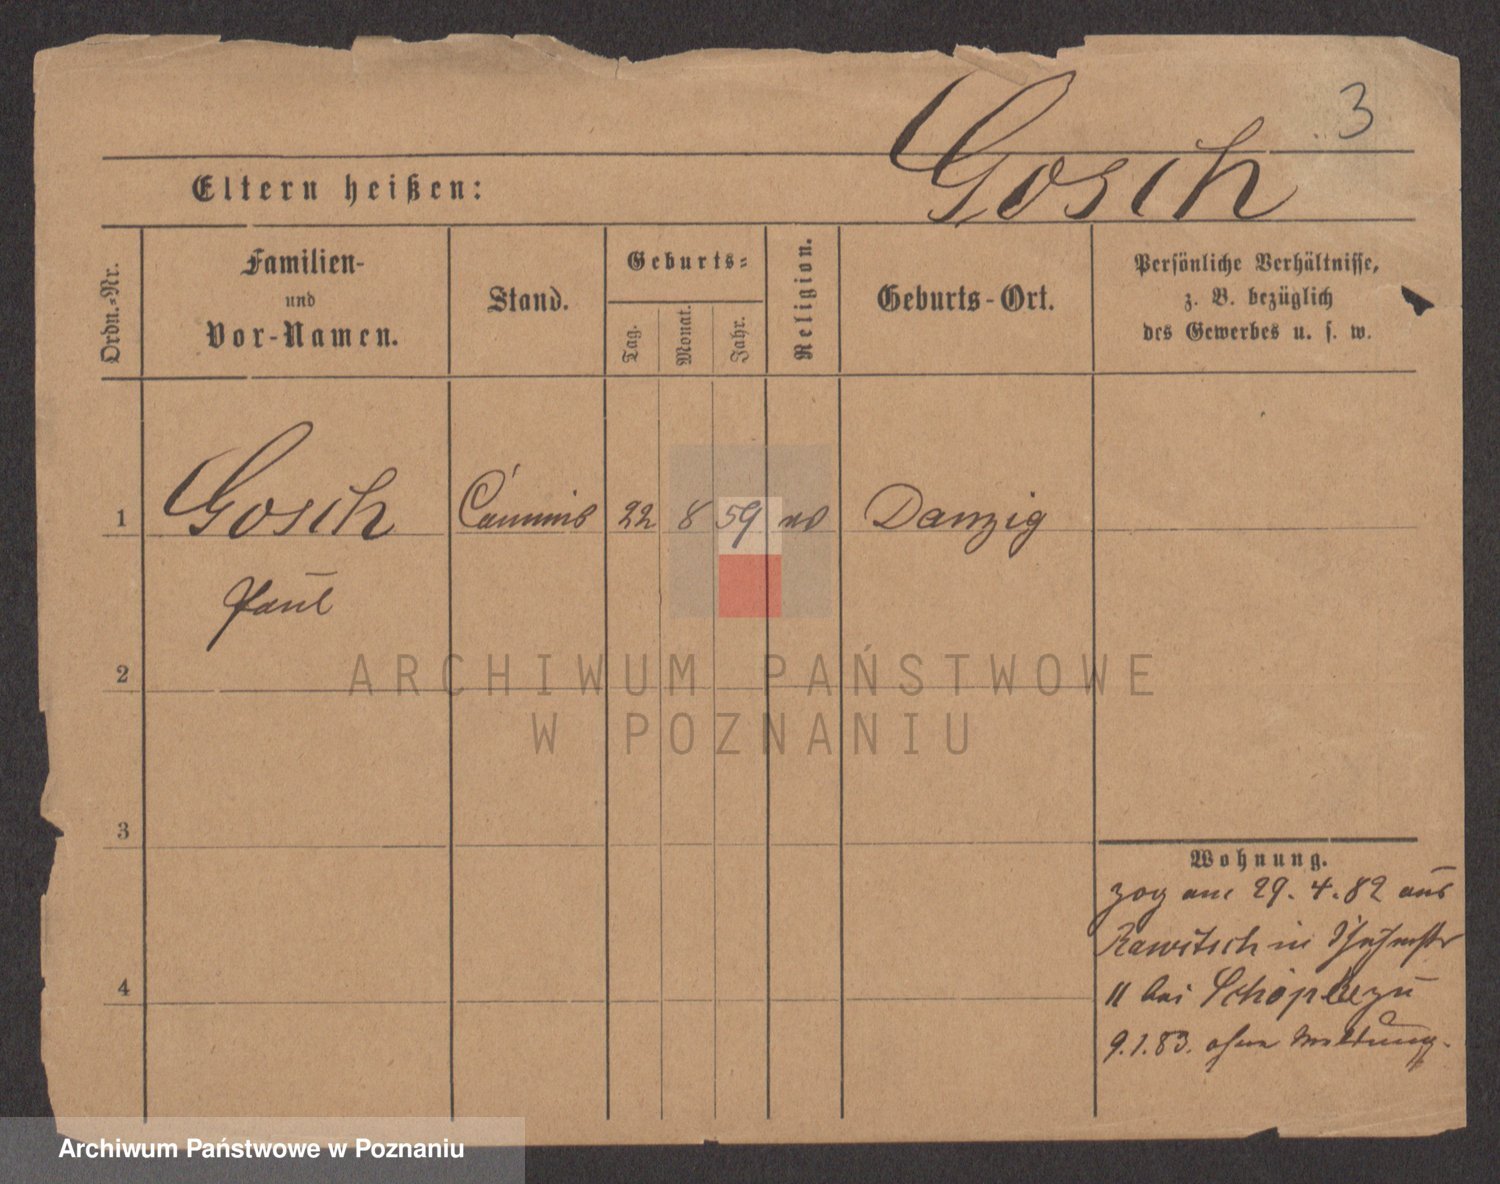 3
Gosch
Eltern heißen:
Ordn.-Nr.
Familien-
und
Vor-Namen.
Stand.
Geburts-
Tag.
Monat.
Jahr.
Religion.
Geburts-Ort.
Persönliche Verhältnisse,
z. B. bezüglich
des Gewerbes u. s. w.
1 Gosch Commis 22 8 59 Danzig
Paul
ARCHIWUM PAŃSTWOWE
W POZNANIU
2
3
4
Wohnung.
zog am 29.4.82 aus
Rawitsch in
11 bei
9.1.83. ohne Meldung.
Archiwum Państwowe w Poznaniu